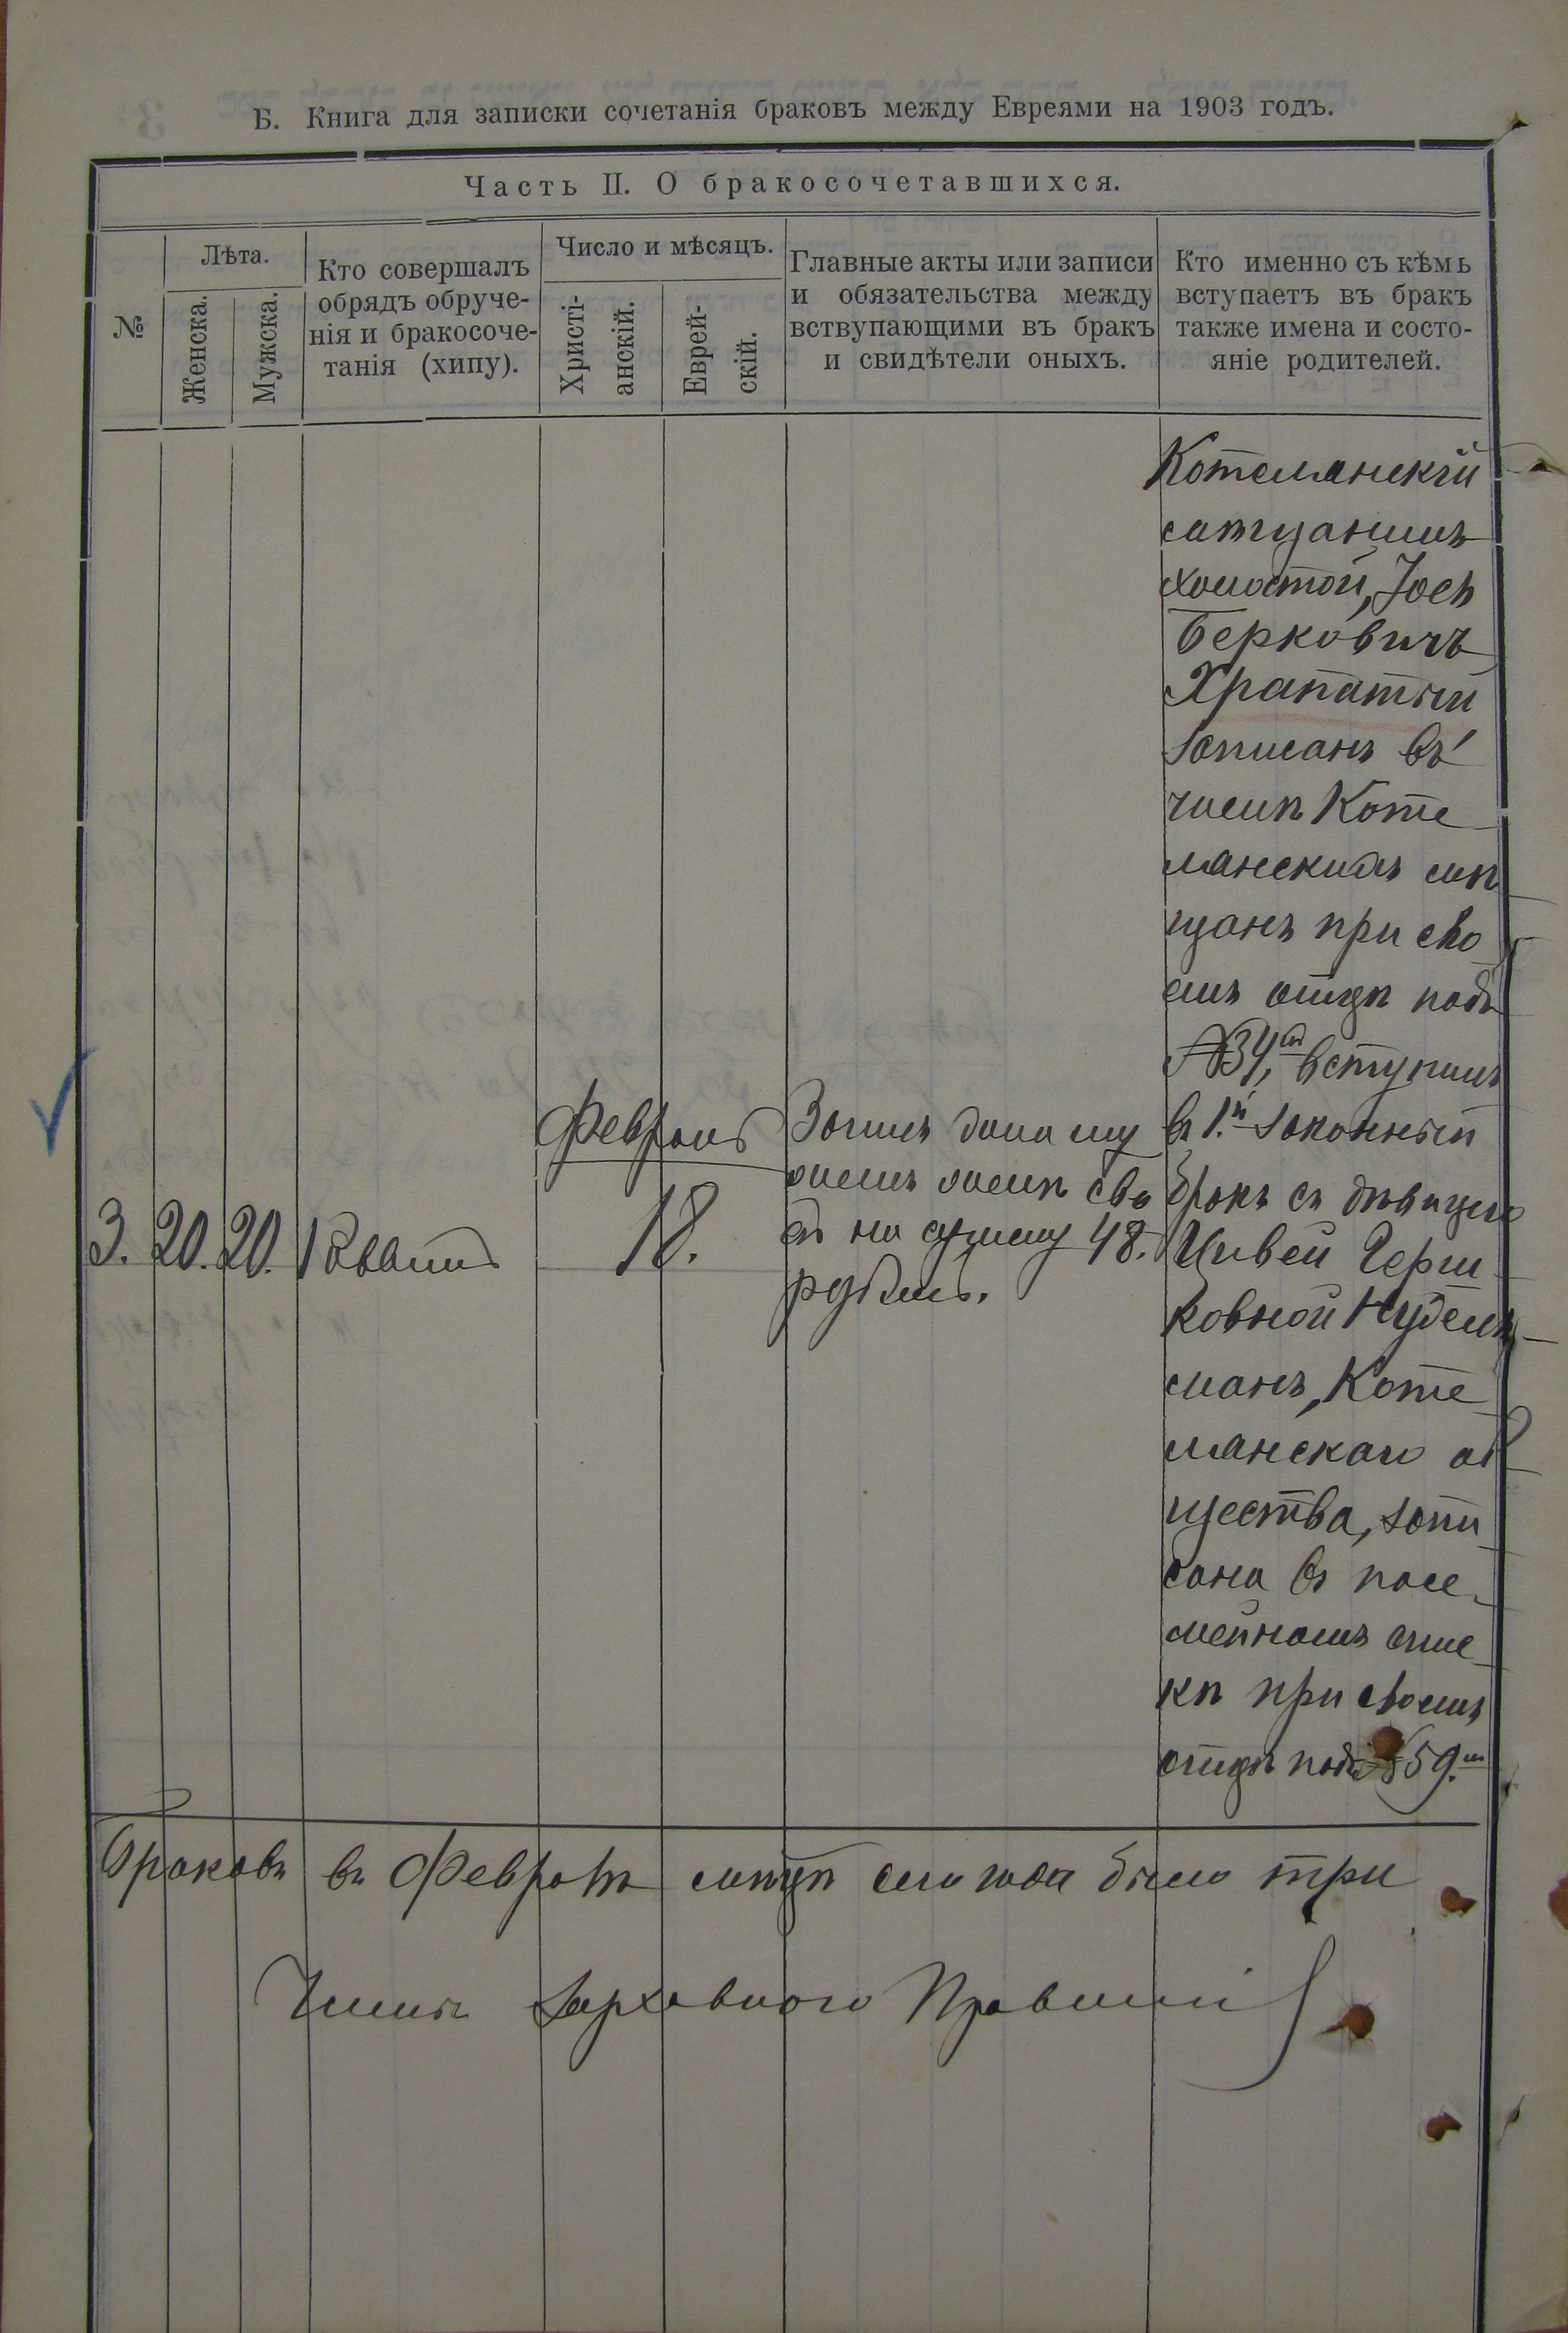 Б. Книга для записки сочетанія браковъ между Евреями на 1903 годъ.
Часть II. О бракосочетавшихся.
№
Лѣта.
Женска.
Мужска.
Кто совершалъ
обрядъ обруче-
нія и бракосоче-
танія (хипу).
Число и мѣсяцъ.
Христі-
анскій.
Еврей-
скій.
Главные акты или записи
и обязательства между
вствупающими въ бракъ
и свидѣтели оныхъ.
Кто именно съ кѣмъ
вступаетъ въ бракъ
также имена и состо-
яніе родителей.
3. 20. 20. Раввинъ
Февраль
18.
на сумму 48.
рубль.
Котелянскій
мѣщанинъ
холостой, Іось
Берковичъ
Храпатый
записанъ въ
числѣ Коте
лянскихъ мѣ
щанъ при сво
емъ отцѣ подъ
вступилъ
въ 1.й законный
бракъ съ дѣвицею
Цивей Герш
ковной Нудель
манъ, Коте
лянскаго об
щества, запи
сана въ посе
мейномъ спис
кѣ при своемъ
отцѣ подъ № 59.
Браковъ въ Февралѣ мѣсяцѣ сего года было три